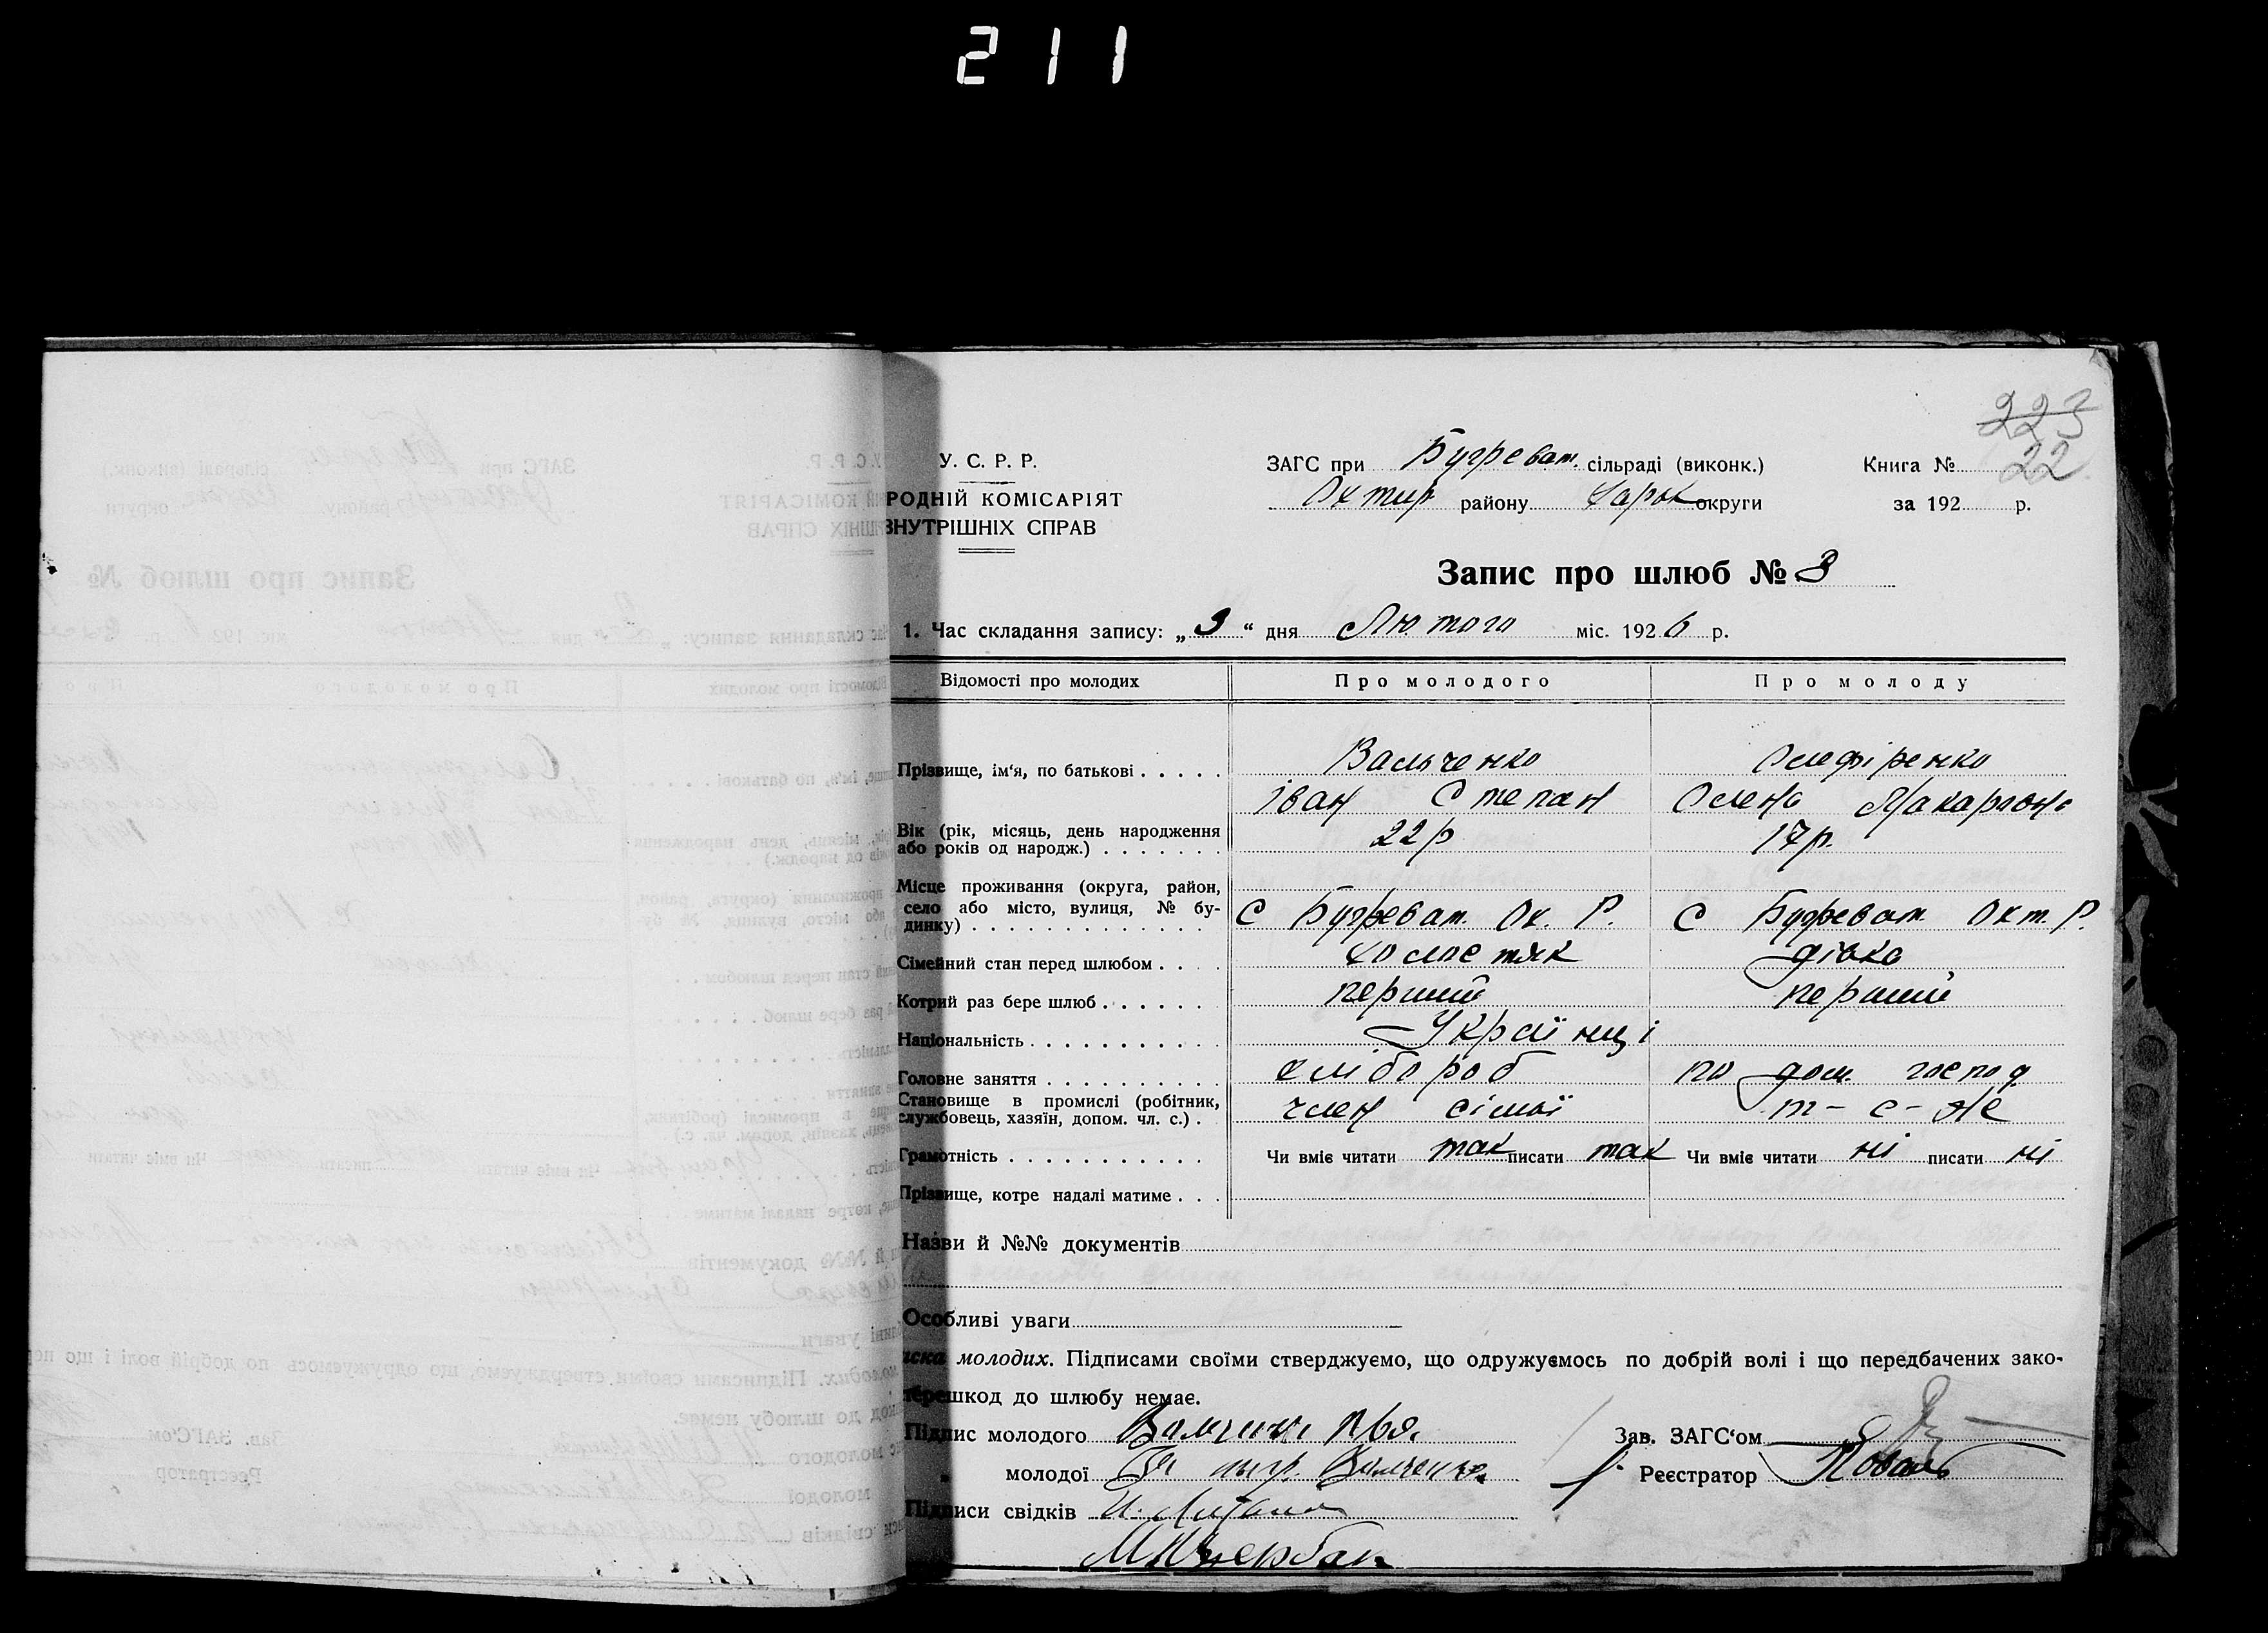 211
223
22
У. С. Р. Р.
РОДНІЙ КОМІСАРІЯТ
ВНУТРІШНІХ СПРАВ
ЗАГС при Бугреват. сільраді (виконк.)
Охтир району Харьк округи
Книга №
за 192 р.
Запис про шлюб № 3
1. Час складання запису: „ 3 “ дня Лютого міс. 1926 р.
Відомості про молодих Про молодого Про молоду
Прізвище, ім‘я, по батькові . . . . . Вальченко Олефіренко
Іван Степан Олена Макаровна
Вік (рік, місяць, день народження
або років од народж.) . . . . . . . 22р 17р.
Місце проживання (округа, район,
село або місто, вулиця, № бу-
динку) . . . . . . . . . . . . . С Бугреват. Ох. Р. С Бугреват. Охт. Р.
Сімейний стан перед шлюбом . . . . холостяк дівка
Котрий раз бере шлюб . . . . . . перший перший
Національність . . . . . . . . . . . Українці
Головне заняття . . . . . . . . . . хлібороб по дом. господ
Становище в промислі (робітник,
службовець, хазяїн, допом. чл. с.) . член сімьї т-с-же
Грамотність . . . . . . . . . . . Чи вміє читати так писати так Чи вміє читати ні писати ні
Прізвище, котре надалі матиме . . .
Назви й №№ документів
Особливі уваги
иска молодих. Підписами своїми стверджуємо, що одружуємось по добрій волі і що передбачених зако-
перешкод до шлюбу немає.
Підпис молодого
Зав. ЗАГС‘ом
молодої
Реєстратор Коваль
Підписи свідків
М Щербак